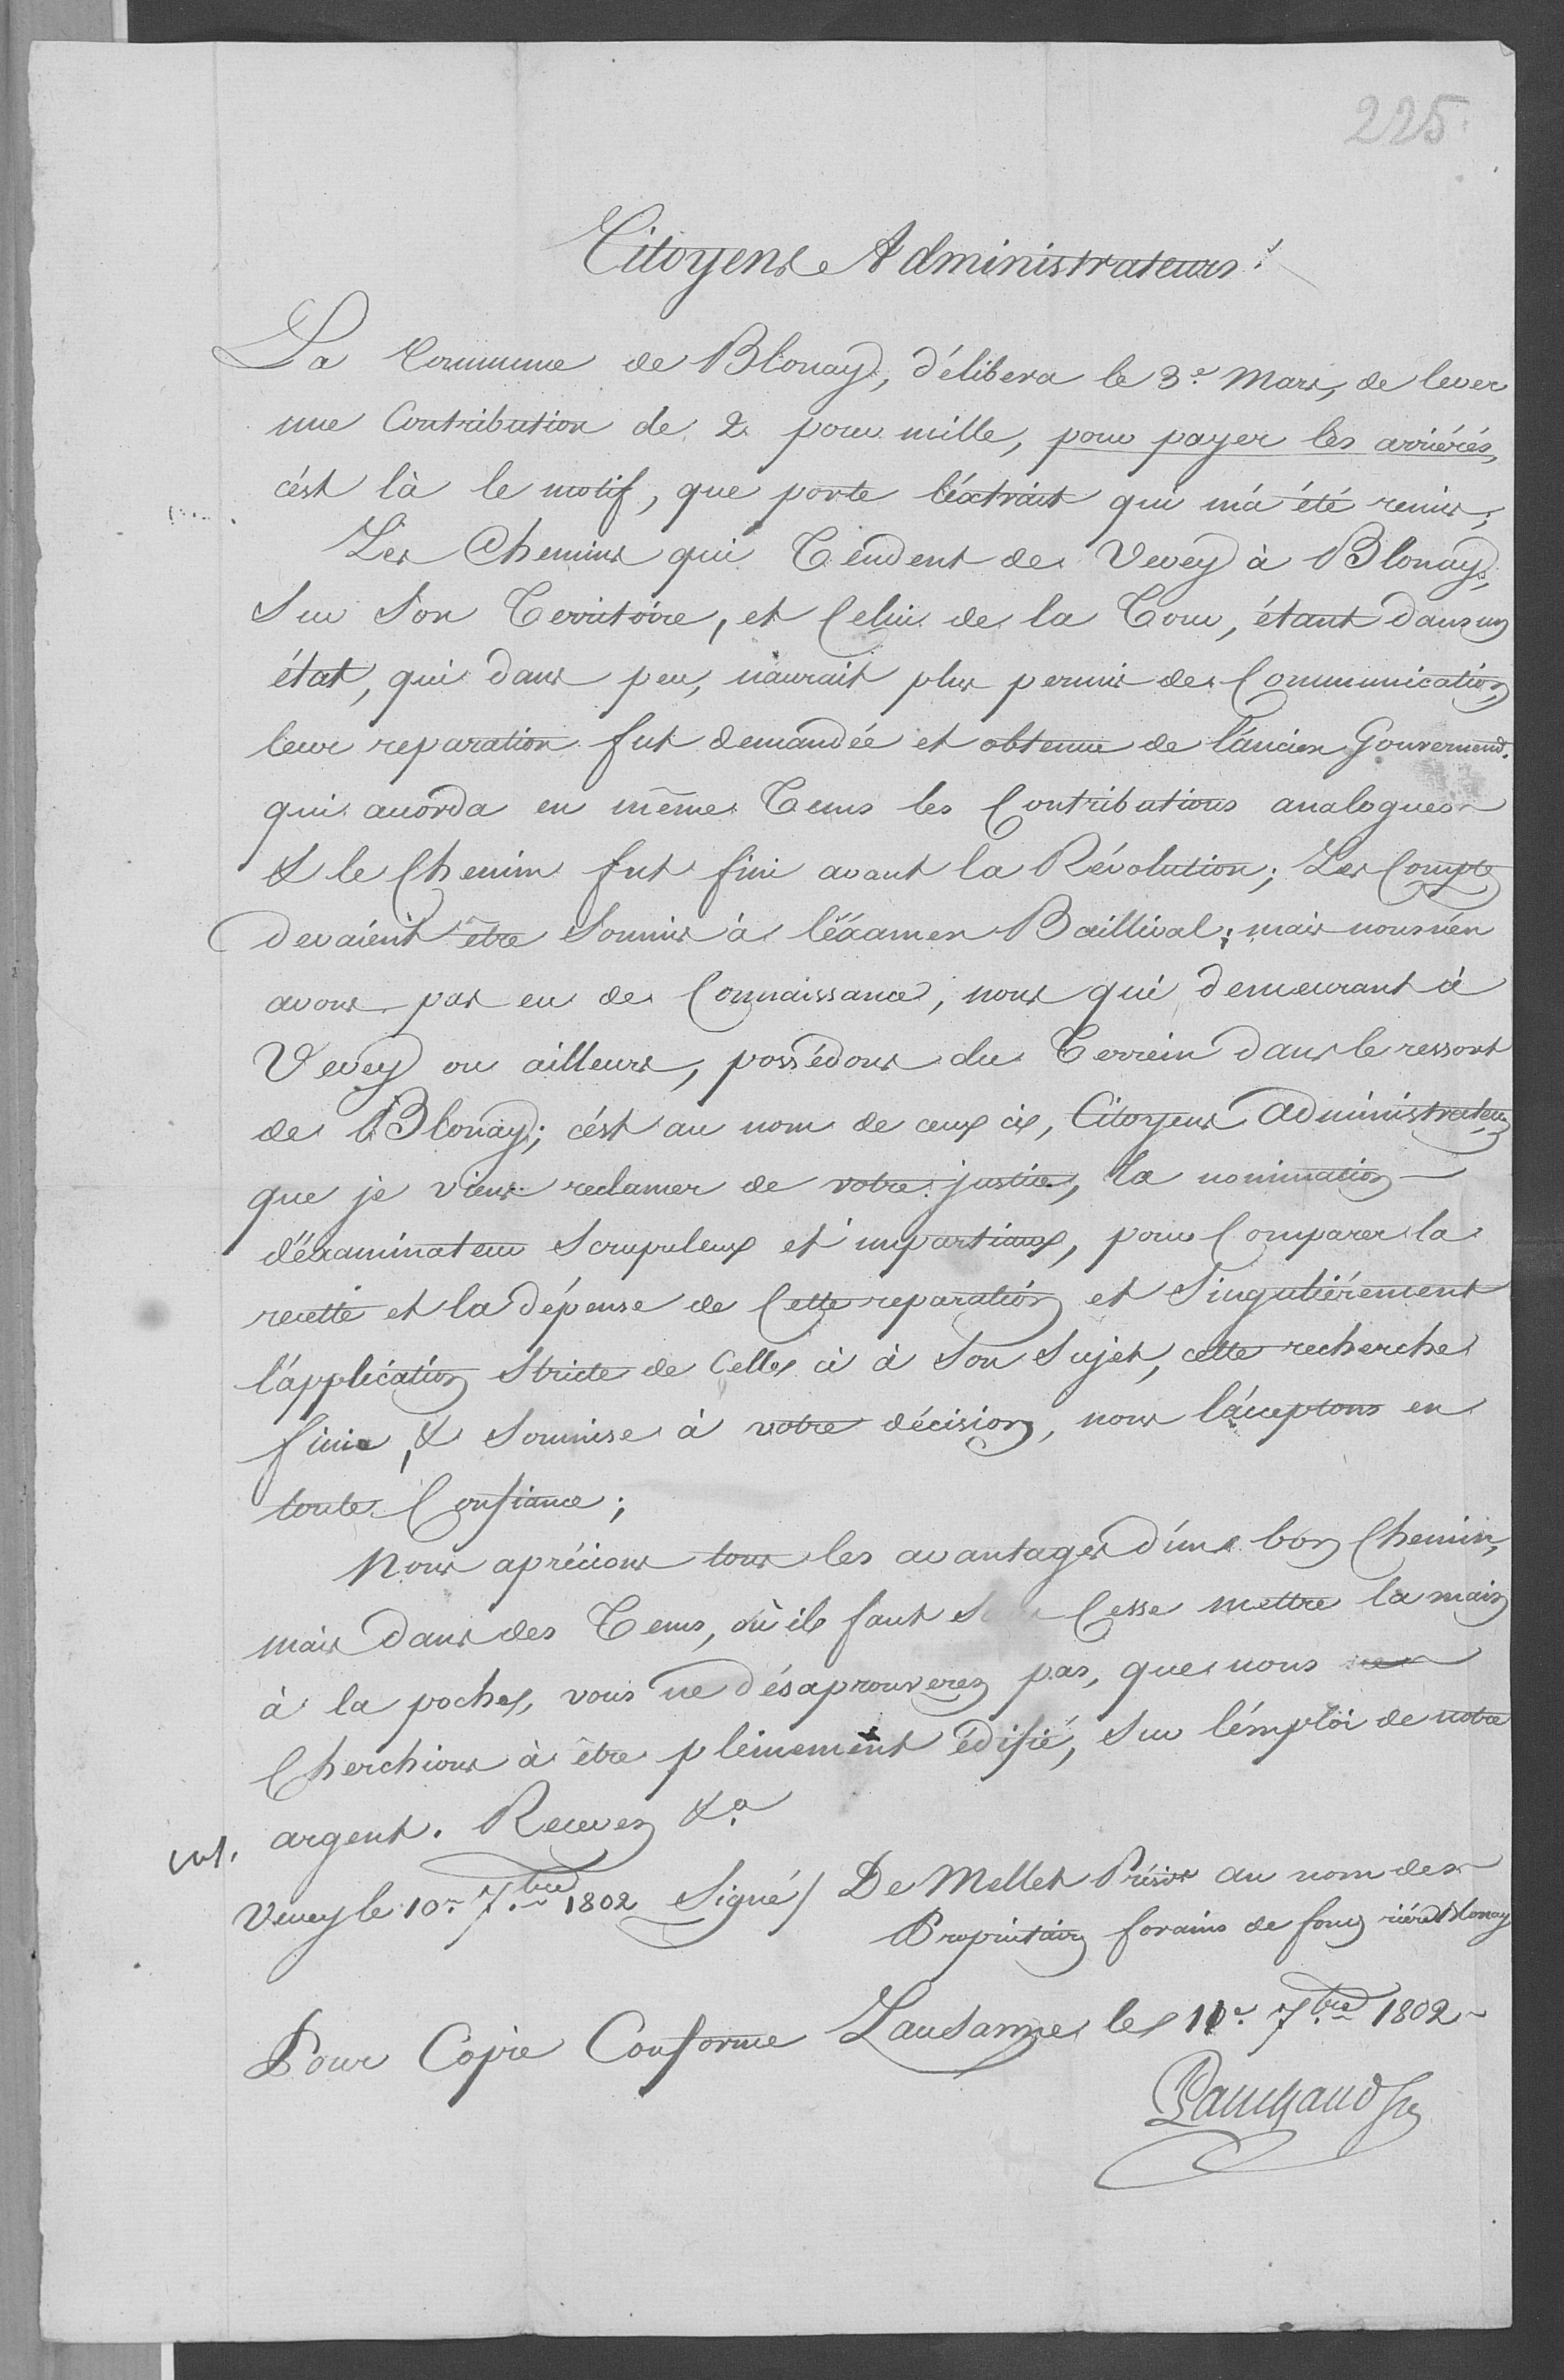 225
Citoyens Administrateurs
La Commune de Blonay, délibera le 3e Mars, de lever
une Contribution de 2 pour mille, pour payer les arriérés,
c'est là le motif, que porte l'éxtrait qui m'a été remis;
Les Chemins qui Tendent de Vevey à Blonay,
Sur Son Territoire, et Celui de la Tour, étant dans un
état, qui dans peu, n'aurait plus permis de Communication,
leur reparation fut demandée et obtenue de l'ancien Gouvernemt.
qui acorda en même Tems les Contributions analogues
& le Chemin fut fini avant la Révolution; Les Comptes
devaient être Soumis à l'éxamen Baillival; mais nous n'en
avons pas eu de Connaissance, nous qui demeurant à
Vevey ou ailleurs, possédons du Terrein dans le ressort
de Blonay; c'est au nom de ceux ci, Citoyens Administrateurs
que je viens reclamer de votre justice, la nomination
d'éxaminateur Scrupuleux et impartiaux, pour Comparer la
recette et la dépense de Cette reparation et Singuliérement
l'application Stricte de Celle ci à Son Sujet, cette recherche
finie, & Soumise à votre décision, nous l'acceptons en
toute Confiance;
Nous aprécions tous les avantages d'un bon Chemin,
mais dans des Tems, où il faut Sans Cesse mettre la main
à la poche, vous ne désaprouverez pas, que nous
Cherchions à être pleinement édifié, Sur l'émploi de notre
argent. Recevez &a
Vevey le 10e 7bre 1802 Signé/ De Mellet Présidt au nom des
Propriétaires forains de fonds riére Blonay
Pour Copie Conforme Lausanne le 11e 7bre 1802
Panchaud